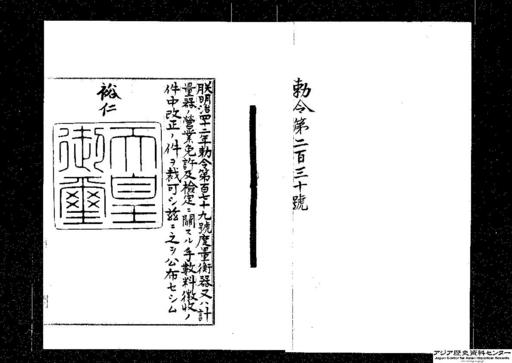 勅令第二百三十號
朕明治四十二年勅令第百七十九號度量衡器又ハ計
量器ノ營業免許及檢定ニ關スル手數料徴收ノ
件中改正ノ件ヲ裁可シ玆ニ之ヲ公布セシム
裕仁
天皇
御璽
アジア歴史資料センター
Japan Center for Asian Historical Records